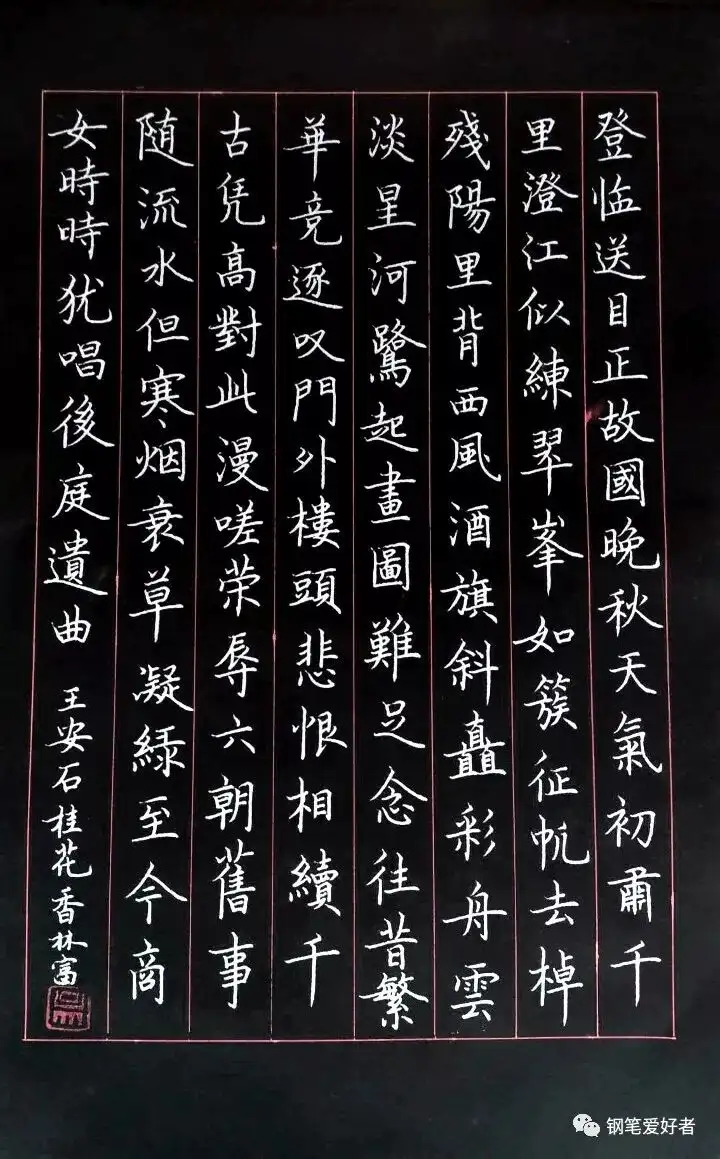 登临送目正故國晚秋天氣初肅千
里澄江似練翠峯如簇征帆去棹
殘陽里背西風酒旗斜矗彩舟雲
淡星河鷺起畫圖難足念往昔繁
華竞逐叹門外樓頭悲恨相續千
古凭高對此漫嗟荣辱六朝舊事
随流水但寒烟衰草凝綠至今商
女時時犹唱後庭遺曲 王安石桂花香林富
钢笔爱好者